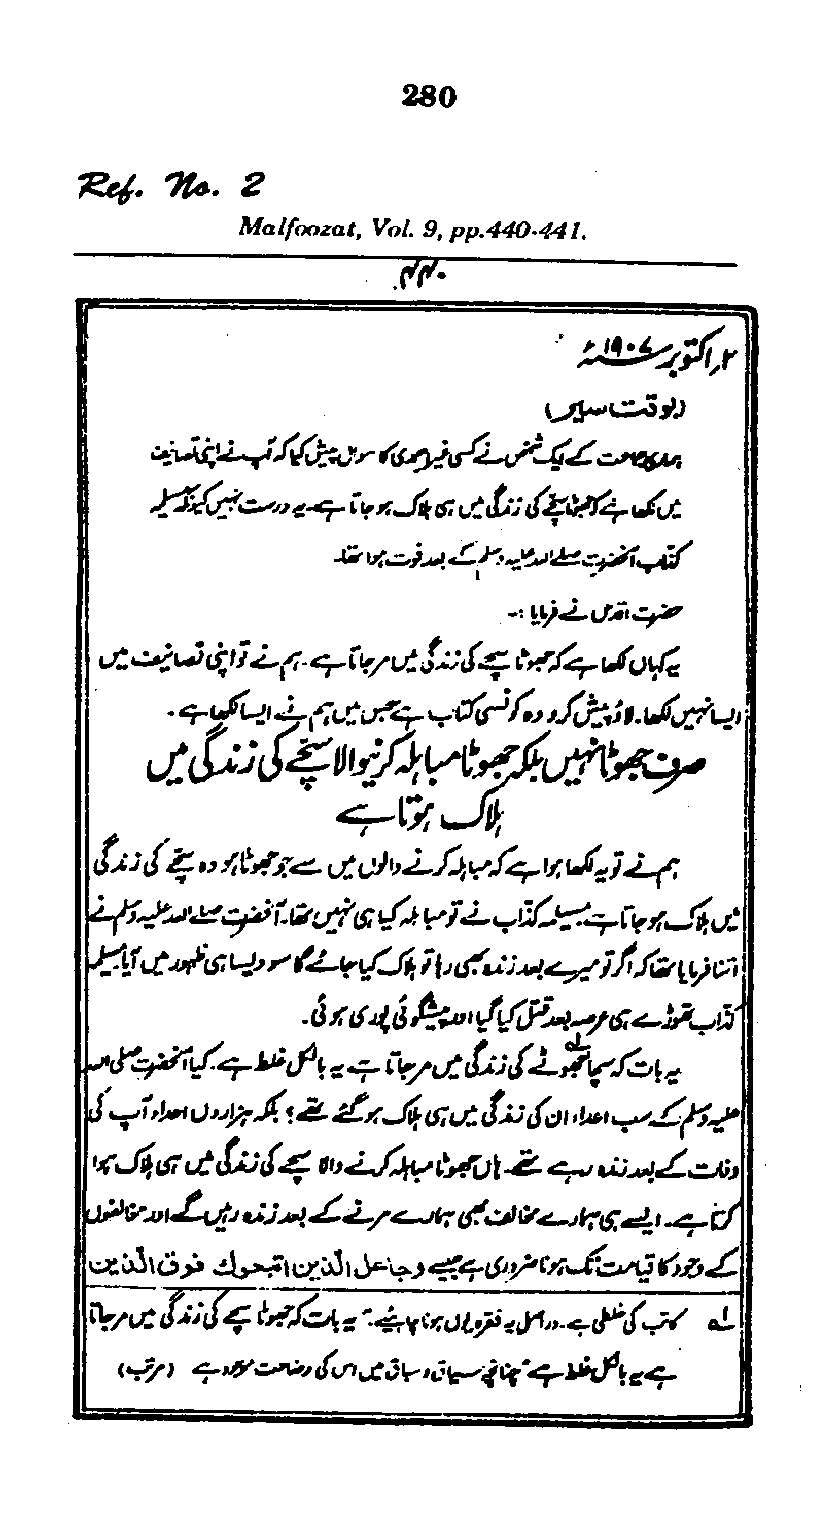 280
Ref. No. 2
Malfoozat, Vol. 9, pp.440-441.
۴۴۰
۲؍اکتوبر ۱۹۰۷ء
(بوقت سیر)
احمدی جماعت کے ایک شخص نے کسی غیر احمدی کا سوال پیش کیا کہ آپ نے اپنی تصانیف
میں لکھا ہے کہ جھوٹا سچے کی زندگی میں ہی ہلاک ہو جاتا ہے۔ یہ درست نہیں کیونکہ مسیلمہ
کذاب آنحضرت صلے اللہ علیہ وسلم کے بعد فوت ہوا تھا۔
حضرت اقدس نے فرمایا :۔
یہ کہاں لکھا ہے کہ جھوٹا سچے کی زندگی میں مر جاتا ہے۔ ہم نے تو اپنی تصانیف میں
ایسا نہیں لکھا۔ لاؤ پیش کرو وہ کونسی کتاب ہے جس میں ہم نے ایسا لکھا ہے۔
صرف جھوٹا نہیں بلکہ جھوٹا مباہلہ کرنیوالا سچے کی زندگی میں
ہلاک ہوتا ہے
ہم نے تو یہ لکھا ہوا ہے کہ مباہلہ کرنے والوں میں سے جو جھوٹا ہو وہ سچے کی زندگی
میں ہلاک ہو جاتا ہے۔ مسیلمہ کذاب نے تو مباہلہ کیا ہی نہیں تھا۔ آنحضرت صلے اللہ علیہ وسلم نے
اتنا فرمایا تھا کہ اگر تو میرے بعد زندہ بھی رہا تو ہلاک کیا جائے گا سو ویسا ہی ظہور میں آیا۔ مسیلمہ
کذاب تھوڑے ہی عرصہ بعد قتل کیا گیا اور پیشگوئی پوری ہوئی۔
یہ بات کہ سچا جھوٹے لہ کی زندگی میں مر جاتا ہے یہ بالکل غلط ہے۔ کیا آنحضرت صلی اللہ
علیہ وسلم کے سب اعداء ان کی زندگی میں ہی ہلاک ہو گئے تھے؟ بلکہ ہزاروں اعداء آپ کی
وفات کے بعد زندہ رہے تھے۔ ہاں جھوٹا مباہلہ کرنے والا سچے کی زندگی میں ہی ہلاک ہوا
کرتا ہے۔ ایسے ہی ہمارے مخالف بھی ہمارے مرنے کے بعد زندہ رہیں گے اور مخالفوں
کے وجود کا قیامت تک ہونا ضروری ہے جیسے وجاعل الذین اتبعوك فوق الذین
لہ کاتب کی غلطی ہے۔ دراصل یہ فقرہ یوں ہونا چاہیئے۔ "یہ بات کہ جھوٹا سچے کی زندگی میں مر جاتا
ہے یہ بالکل غلط ہے" چنانچہ سیاق و سباق میں اس کی وضاحت موجود ہے (مرتب)